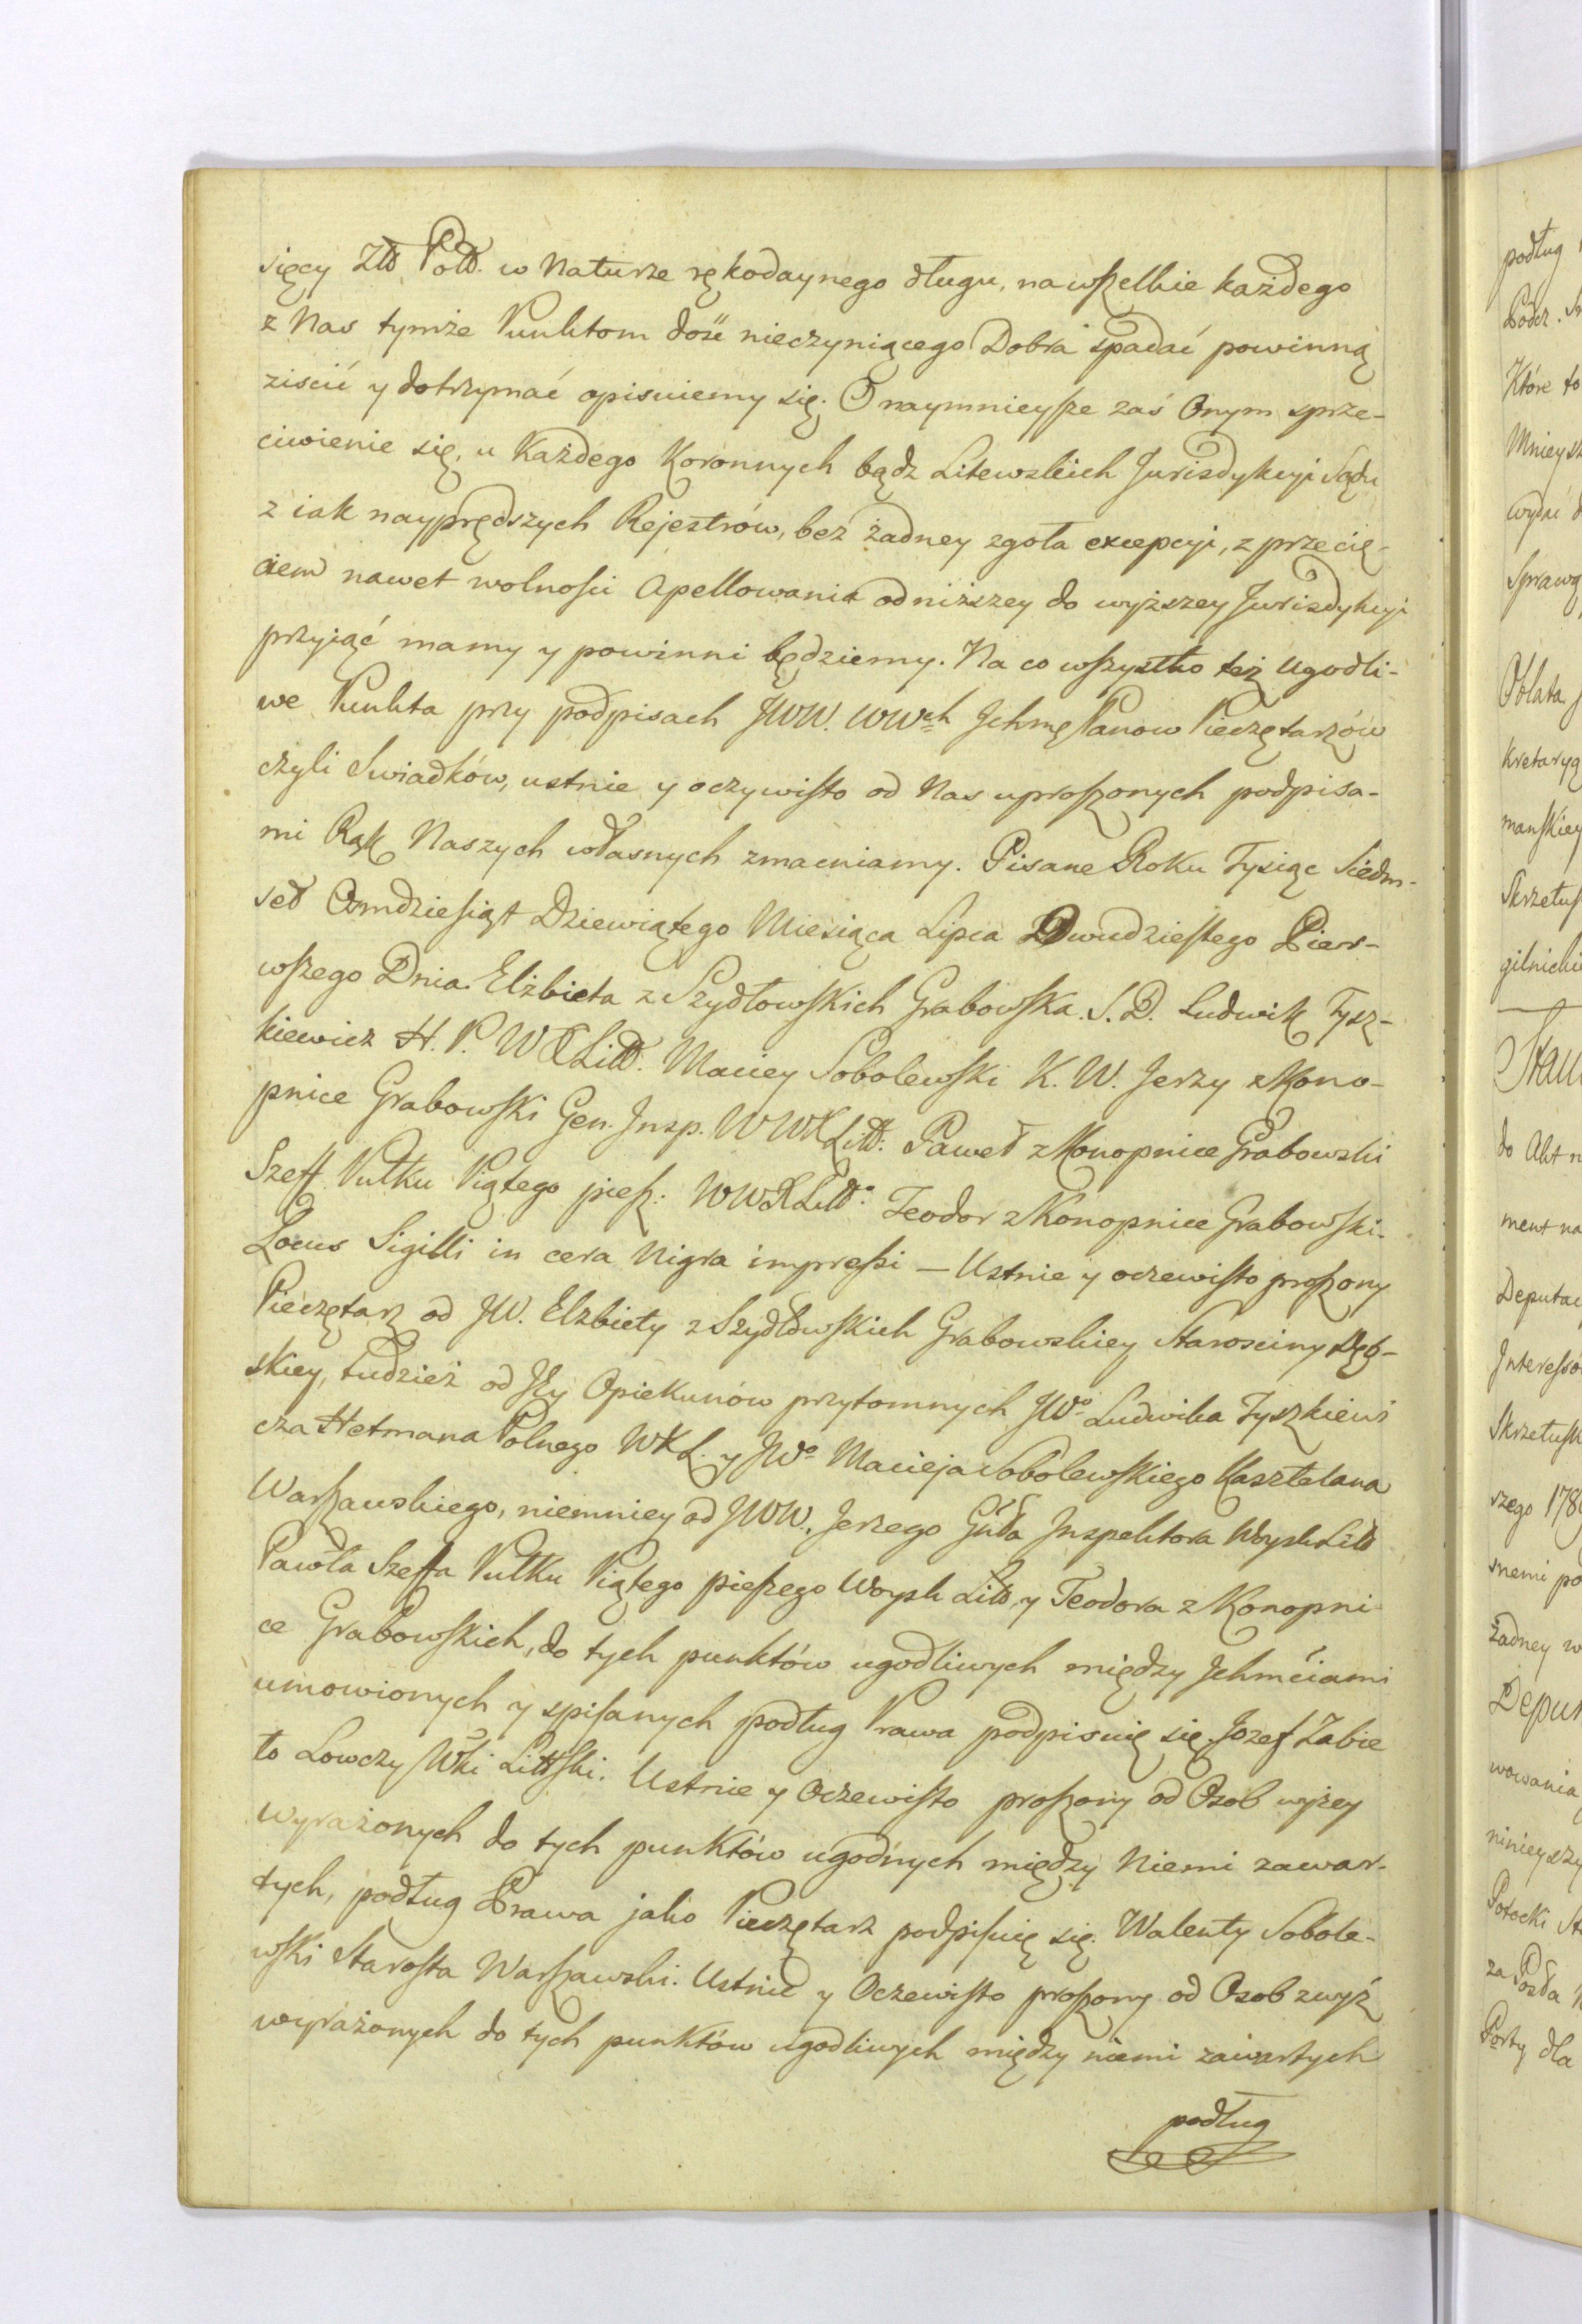 sięcy Złł Poll. w Naturze rękodaynego długu, na wszelkie każdego
z Nas tymże Punktom dość nieczyniącego Dobra spadać powinną
ziścić y dotrzymać opisuiemy się. O naymnieysze zaś Onym sprze-
ciwienie się, u Każdego Koronnych bądz Litewskich Jurisdykcyi Sądu
z iak nayprędszych Rejestrów, bez żadney zgoła excepcyi, z przecię-
ciem nawet wolności Apellowania od niższey do wyższey Jurisdykcyi
przyjąć mamy y powinni będziemy. Na co wszystko też Ugodli-
we Punkta przy podpisach JWW. WWch Jchmę Panow Pieczętarzów
czyli Swiadków, ustnie y oczywisto od Nas uproszonych podpisa-
mi Rąk Naszych własnych zmacniamy. Pisane Roku Tysiąc Siedm-
set Osmdziesiąt Dziewiątego Miesiąca Lipca Dwudziestego Pier-
wszego Dnia. Elżbieta z Szydłowskich Grabowska. S. D. Ludwik Tysz-
kiewicz H. P. W X Litt. Maciey Sobolewski K. W. Jerzy z Kono-
pnice Grabowski Gen. Jnsp. WWX Litt: Paweł z Konopnice Grabowski
Szeff Pułku Piątego piesz: WWX Litt: Teodor z Konopnice Grabowski.
Locus Sigilli in cera Nigra impressi — Ustnie y oczewisto proszony
Pieczętarz od JW. Elżbiety z Szydłowskich Grabowskiey Starosciny Dęb-
skiey, tudzież od Jey Opiekunów przytomnych JWo Ludwika Tyszkiewi
cza Hetmana Polnego WXL. y JWo Macieja Sobolewskiego Kasztelana
Warszawskiego, niemniey od JWW. Jerzego Gnła Jnspektora Woysk Litt
Pawła Szeffa Pułku Piątego pieszego Woysk Litt y Teodora z Konopni
ce Grabowskich, do tych punktów ugodliwych między Jchmściami
umowionych y spisanych podług Prawa podpisuię się. Jozef Zabie
ło Lowczy Wki Littski. Ustnie y Oczewisto proszony od Osob wyżey
wyrażonych do tych punktów ugodnych między Niemi zawar-
tych, podług Prawa jako Pieczętarz podpisuię się. Walenty Sobole-
wski Starosta Warszawski. Ustnie y Oczewisto proszony od Osob zwyż
wyrażonych do tych punktów ugodliwych między niemi zawartych
podług
podług
Które to
Mnieysz
wydać d
Sprawą
Oblata
kretaryą
manskiey
Skrzetus
do Akt n
ment na
Deputac
Jnteressó
Skrzetusk
rzego 178
snemi po
żadney w
Depu
wowania
ninieyszy
Potocki St
za Posła
Porty dla